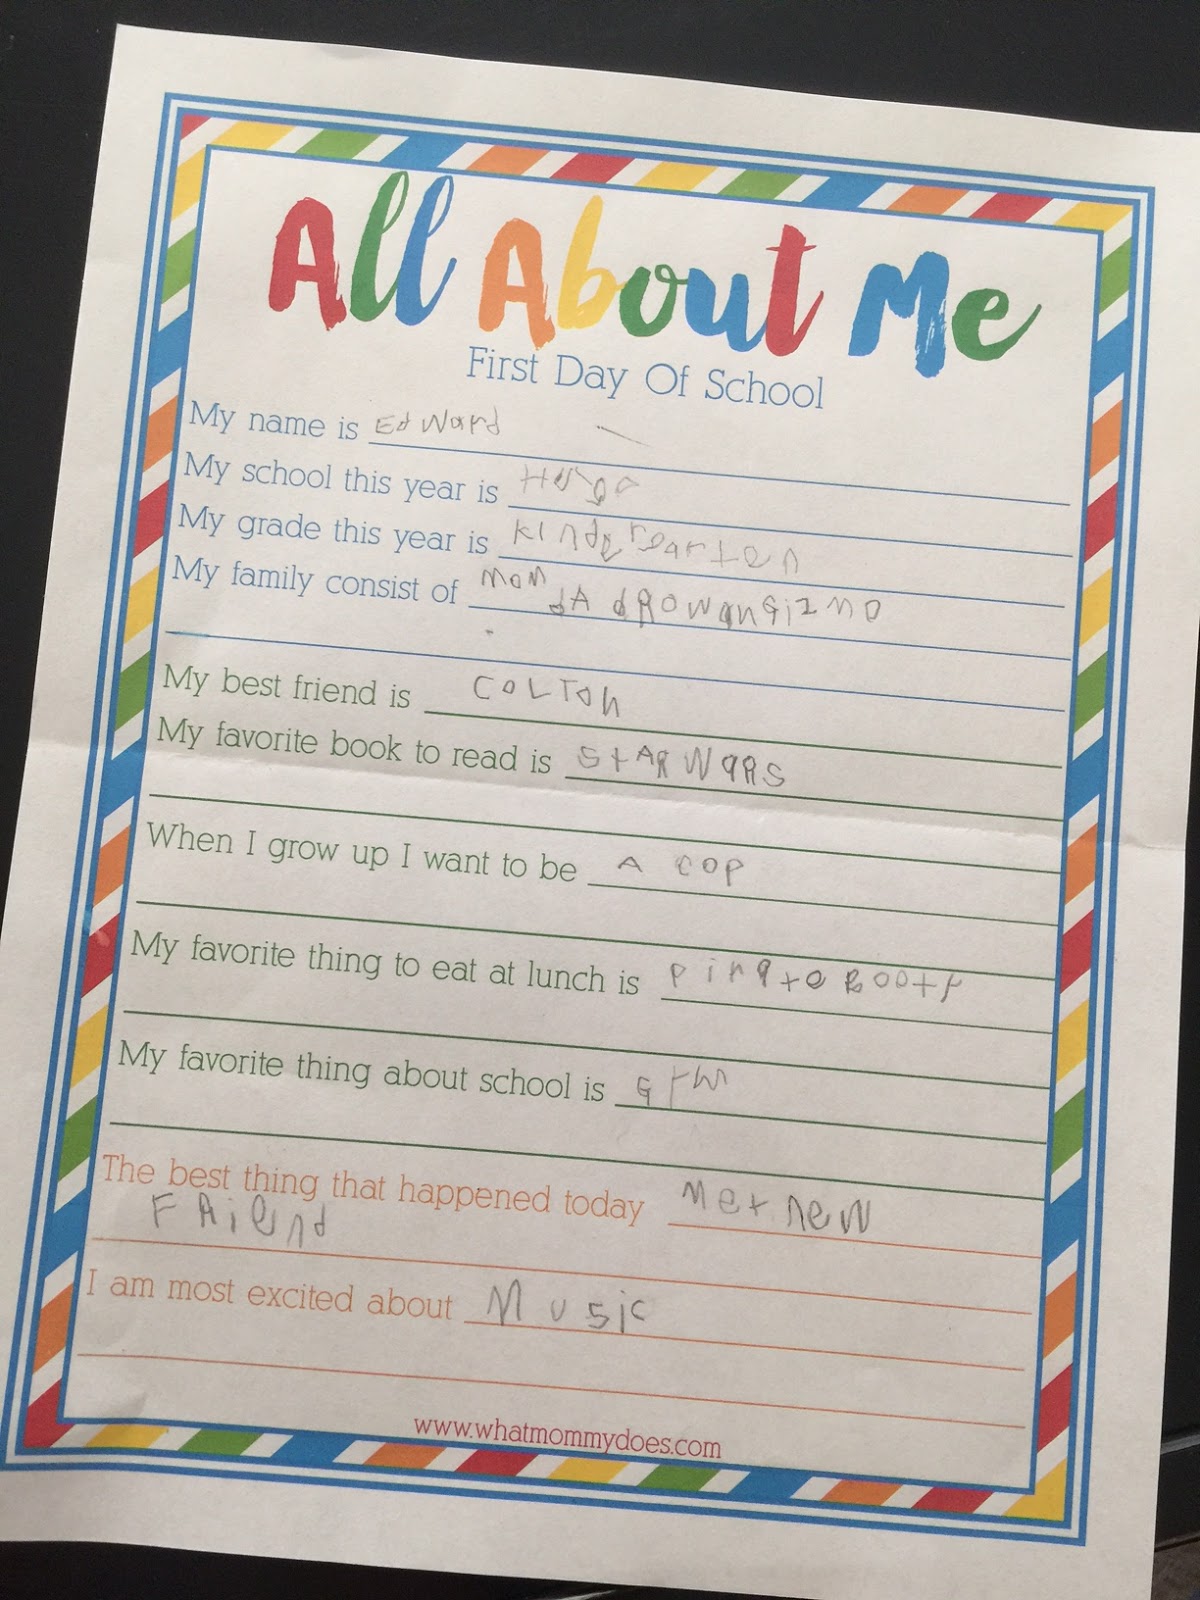 All About Me
First Day Of School
My name is Edward
My school this year is
My grade this year is kindergarten
My family consist of mom dAd ROWanGizmo
My best friend is COLTOn
My favorite book to read is StAR WaRS
When I grow up I want to be A cop
My favorite thing to eat at lunch is
My favorite thing about school is
The best thing that happened today Met new
FRiend
I am most excited about Music
www.whatmommydoes.com